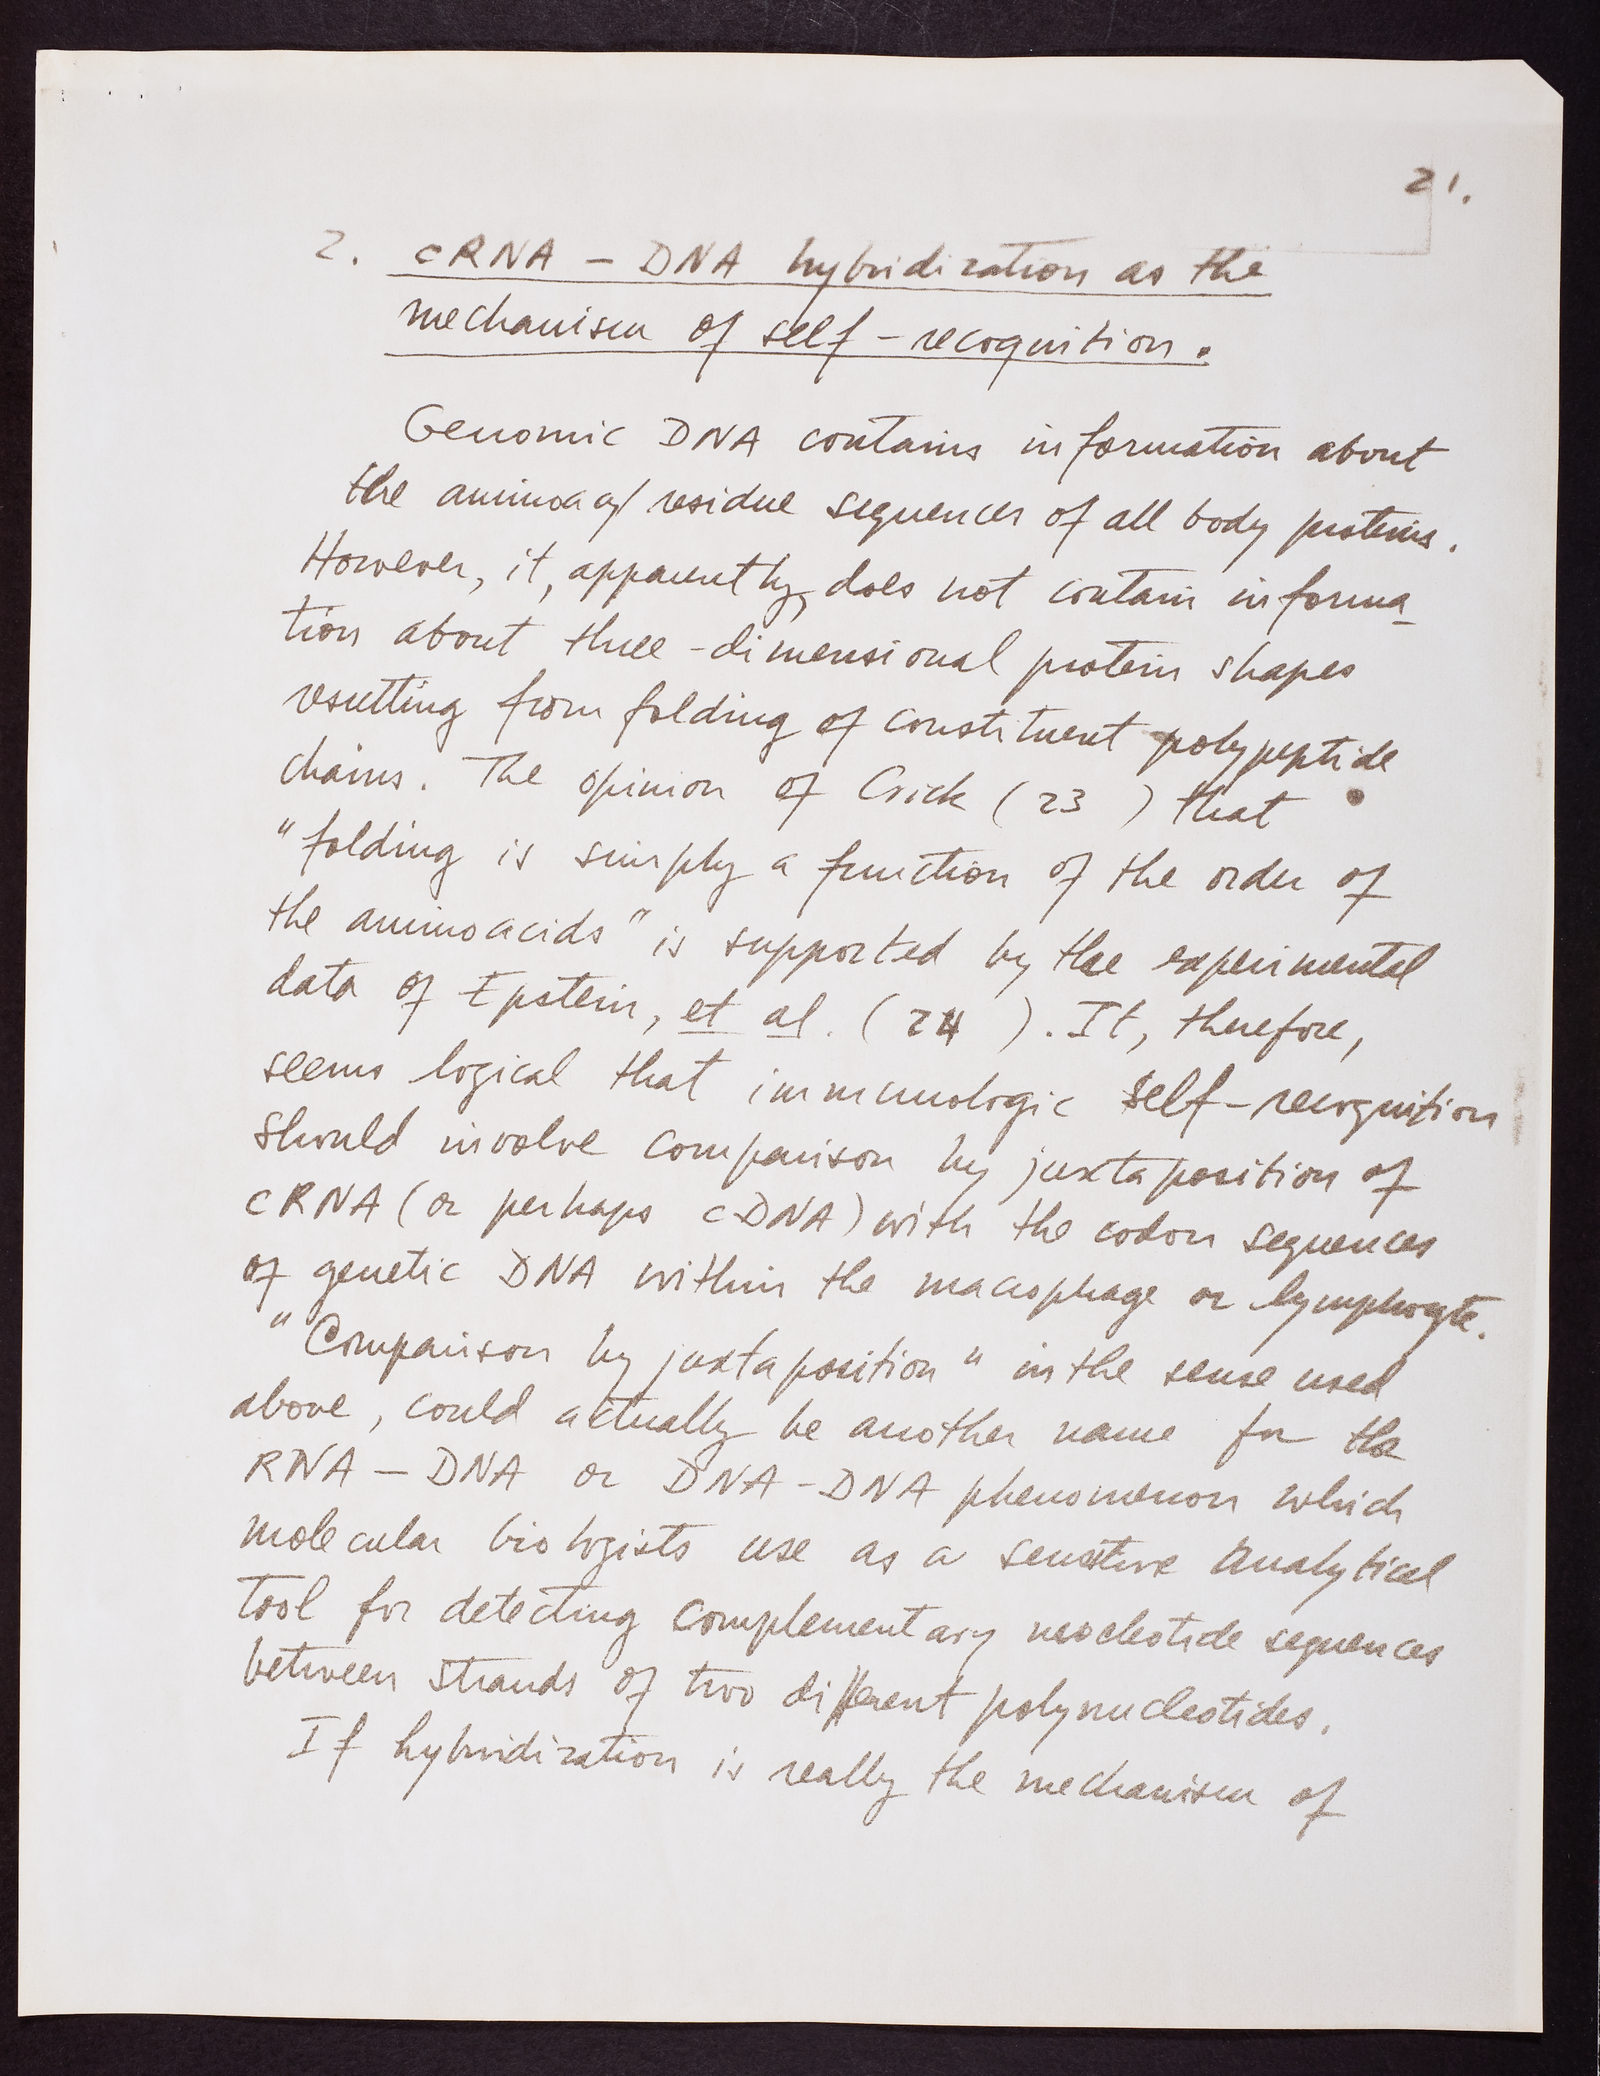 21.
2. cRNA – DNA hybridization as the
mechanism of self-recognition.
Genomic DNA contains information about
the aminoacyl residue sequences of all body proteins.
However, it, apparently, does not contain informa-
tion about three-dimensional protein shapes
resulting from folding of constituent polypeptide
chains. The opinion of Crick (23) that
"folding is simply a function of the order of
the aminoacids" is supported by the experimental
data of Epstein, et al. (24). It, therefore,
seems logical that immunologic self-recognition
should involve comparison by juxtaposition of
cRNA (or perhaps cDNA) with the codon sequences
of genetic DNA within the macrophage or lymphocyte.
"Comparison by juxtaposition" in the sense used
above, could actually be another name for the
RNA – DNA or DNA-DNA phenomenon which
molecular biologists use as a sensitive analytical
tool for detecting complementary sequences
between strands of two different polynucleotides.
If hybridization is really the mechanism of